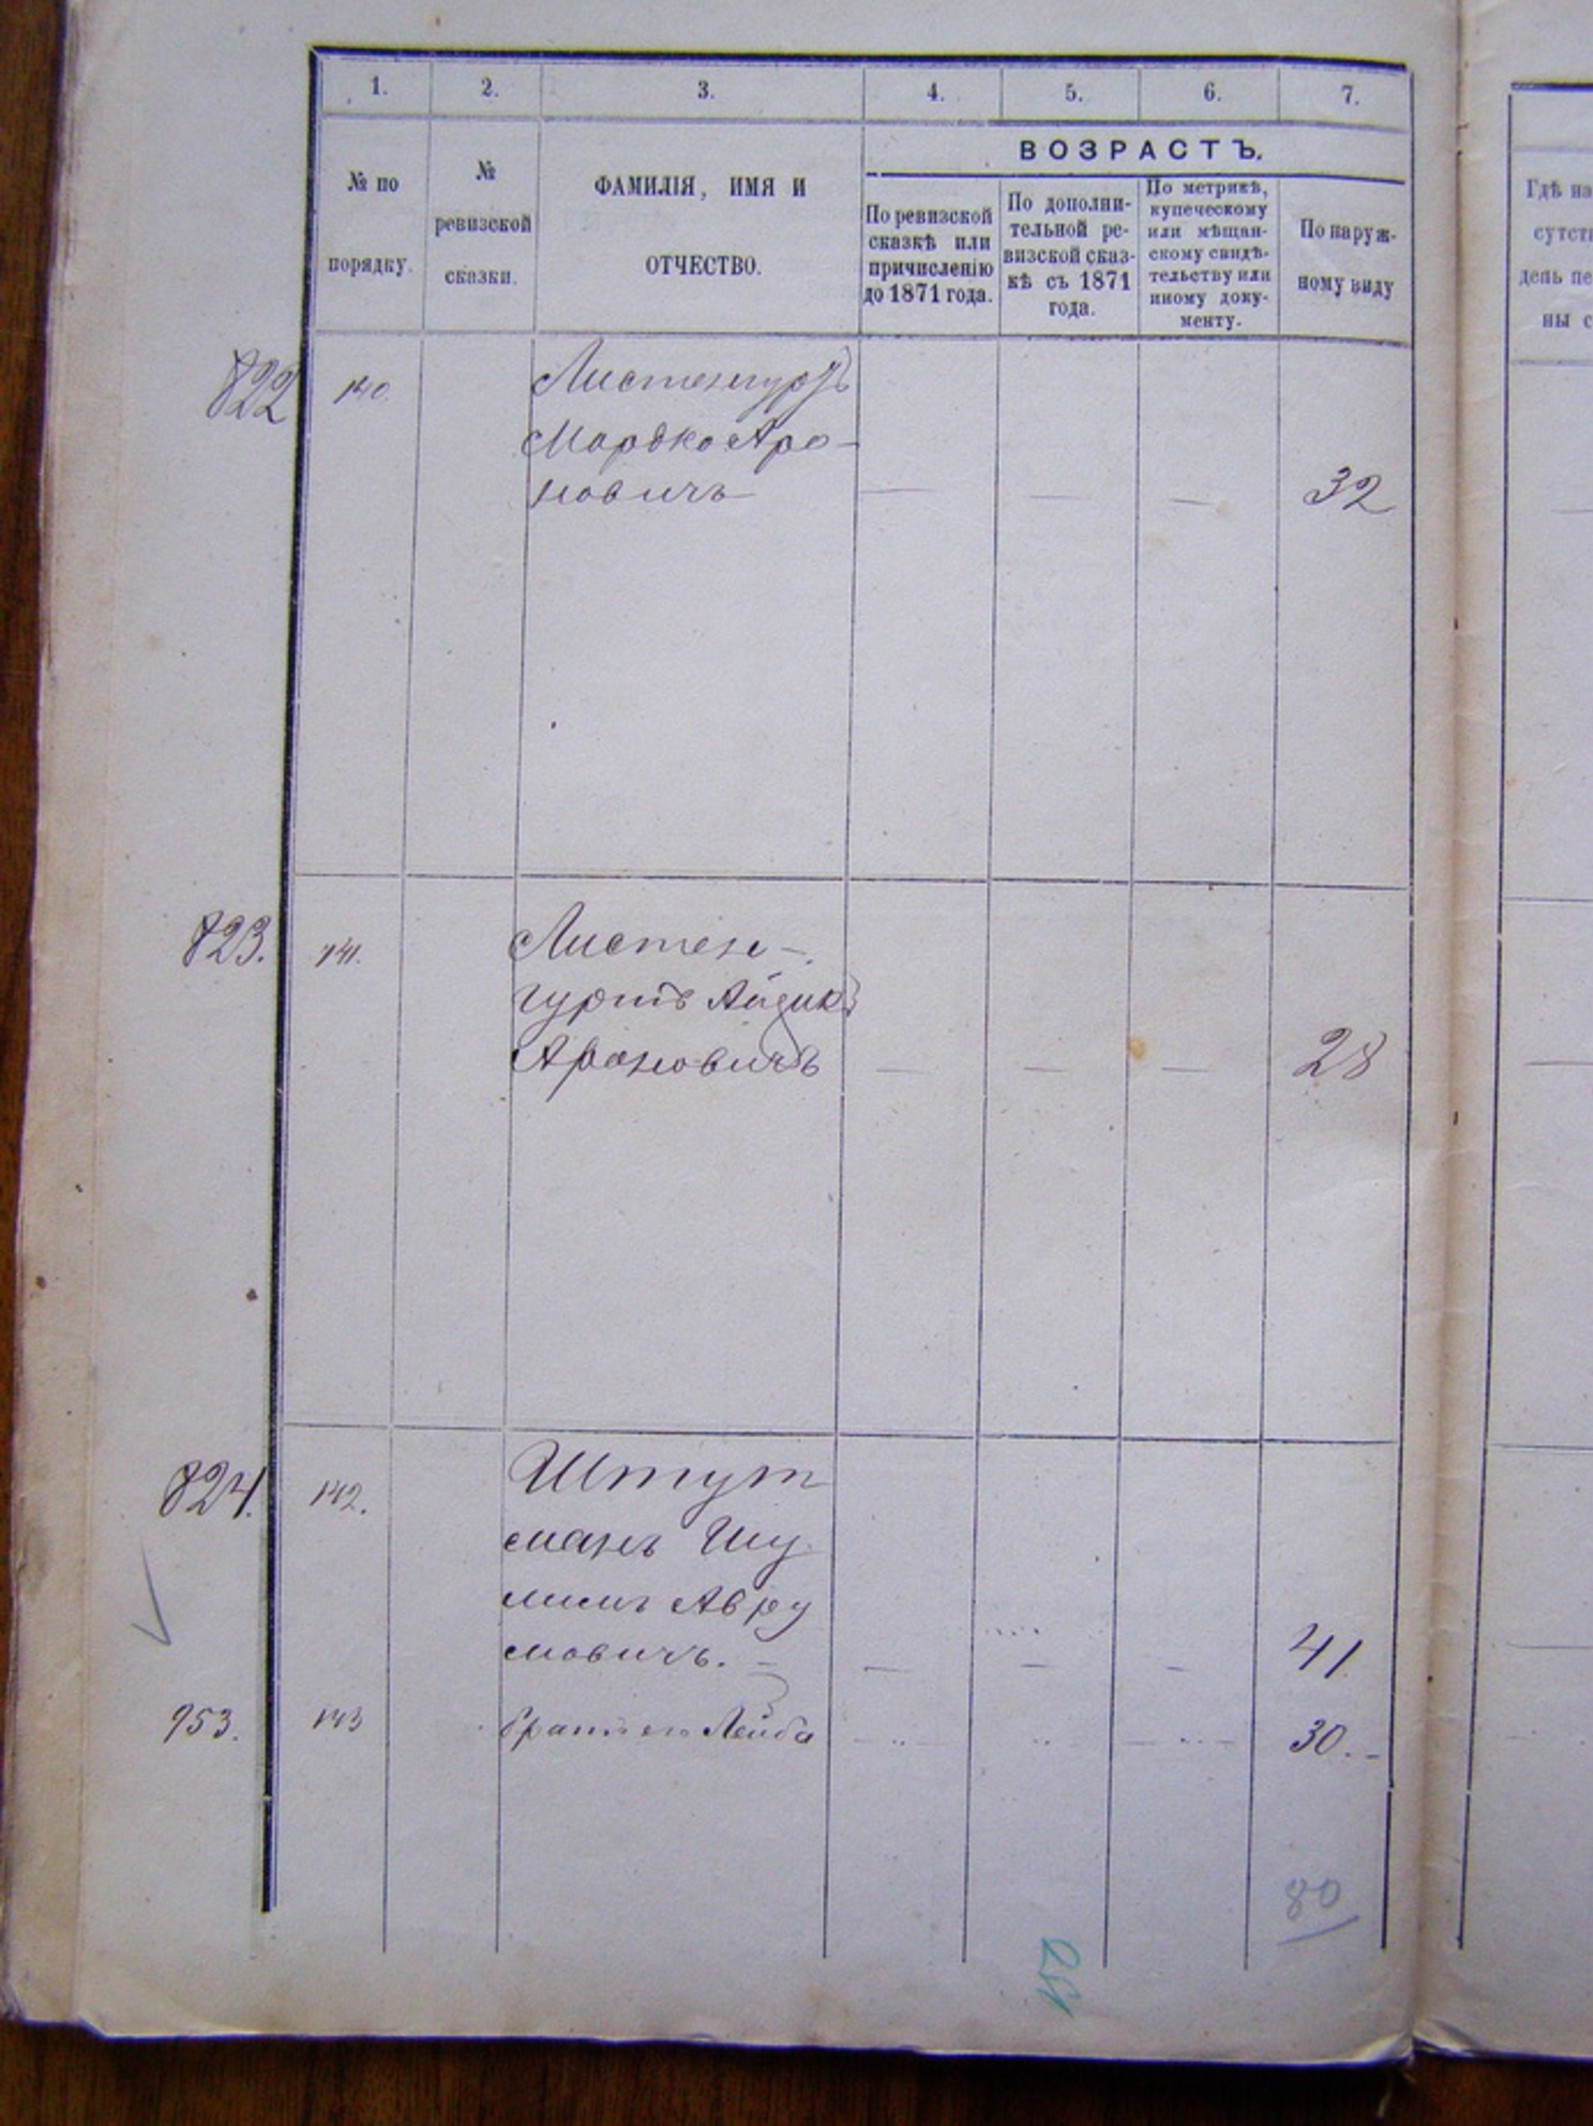 1. 2. 3. 4. 5. 6. 7.
№ по
порядку.
№
ревизской
сказки.
ФАМИЛІЯ, ИМЯ И
ОТЧЕСТВО.
ВОЗРАСТЪ.
По ревизской
сказкѣ или
причисленію
до 1871 года.
По дополни-
тельной ре-
визской сказ-
кѣ съ 1871
года.
По метрикѣ,
купеческому
или мѣщан-
скому свидѣ-
тельству или
иному доку-
менту.
По наруж-
ному виду
Гдѣ на
сутст
день пе
ны с
822 140.
Мордко Аро-
новичъ — — — 32
823. 141. Листен-
гуртъ Айзикъ
Ароновичъ — — — 28
824. 142. Штут
манъ Шу
лимъ Авру
мовичъ. — — — — 41.
953. 143 братъ его Лейба 30. -
80